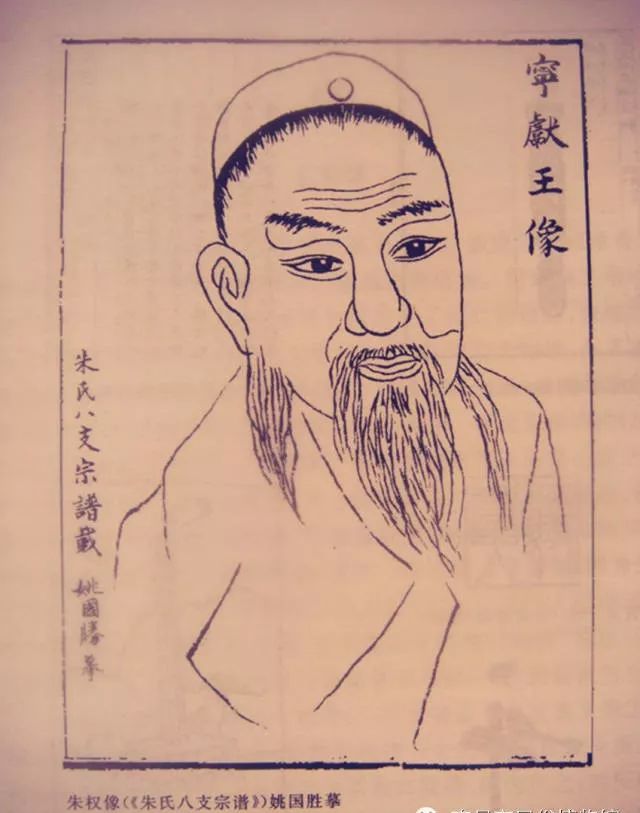 寧獻王像
朱氏八支宗譜載
姚國勝摹
朱权像(《朱氏八支宗谱》)姚国胜摹